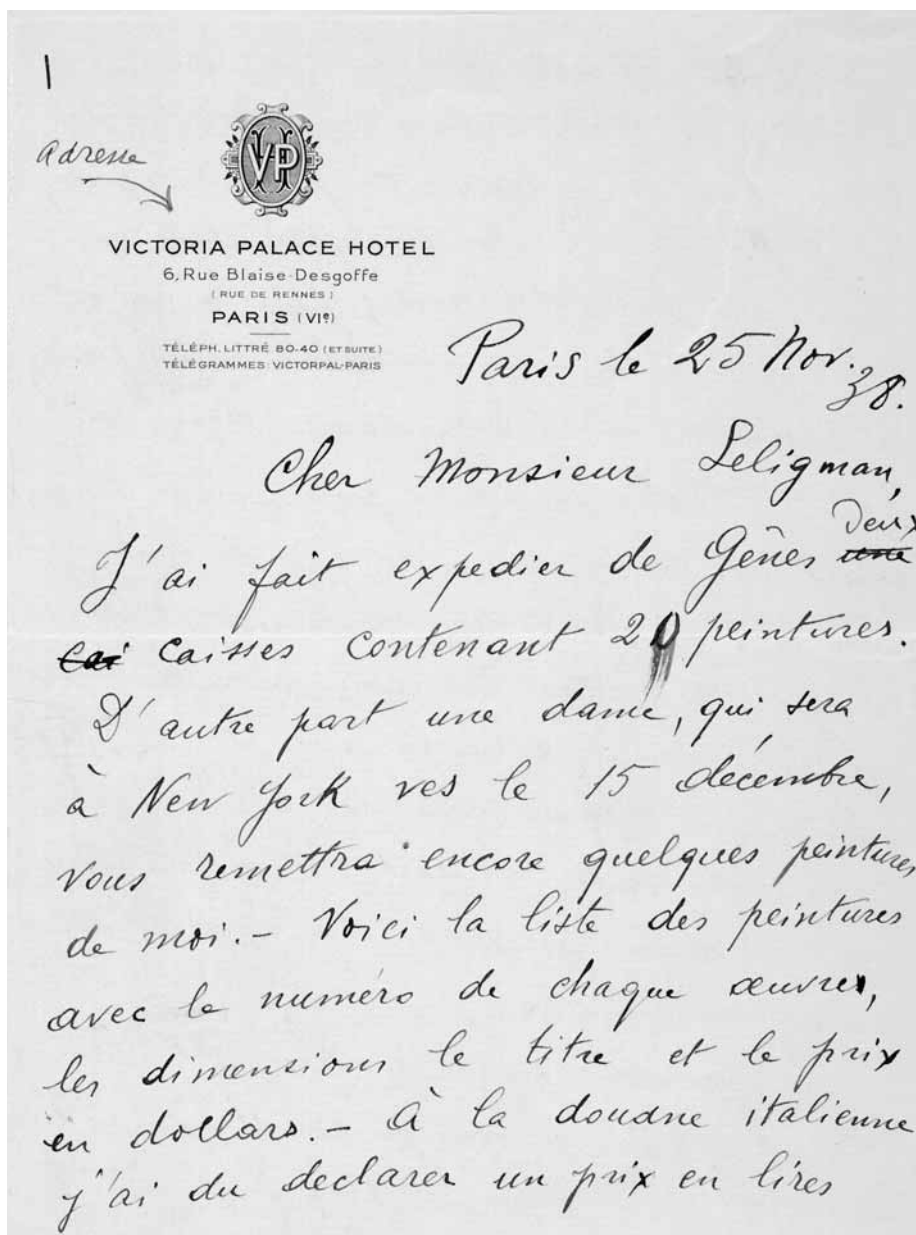 1
Adresse
VHP
VICTORIA PALACE HOTEL
6, Rue Blaise-Desgoffe
(RUE DE RENNES)
PARIS (VIe)
TÉLÉPH. LITTRÉ 80-40 (ET SUITE)
TÉLÉGRAMMES: VICTORPAL-PARIS
Paris le 25 Nov. 38.
Cher Monsieur Seligman,
J'ai fait expedier de Gênes deux une
cai caisses contenant 20 peintures.
D'autre part une dame, qui sera
à New York ves le 15 décembre,
vous remettra encore quelques peintures
de moi. - Voici la liste des peintures
avec le numéro de chaque œuvre,
les dimensions le titre et le prix
en dollars. - à la douane italienne
j'ai du declarer un prix en lires